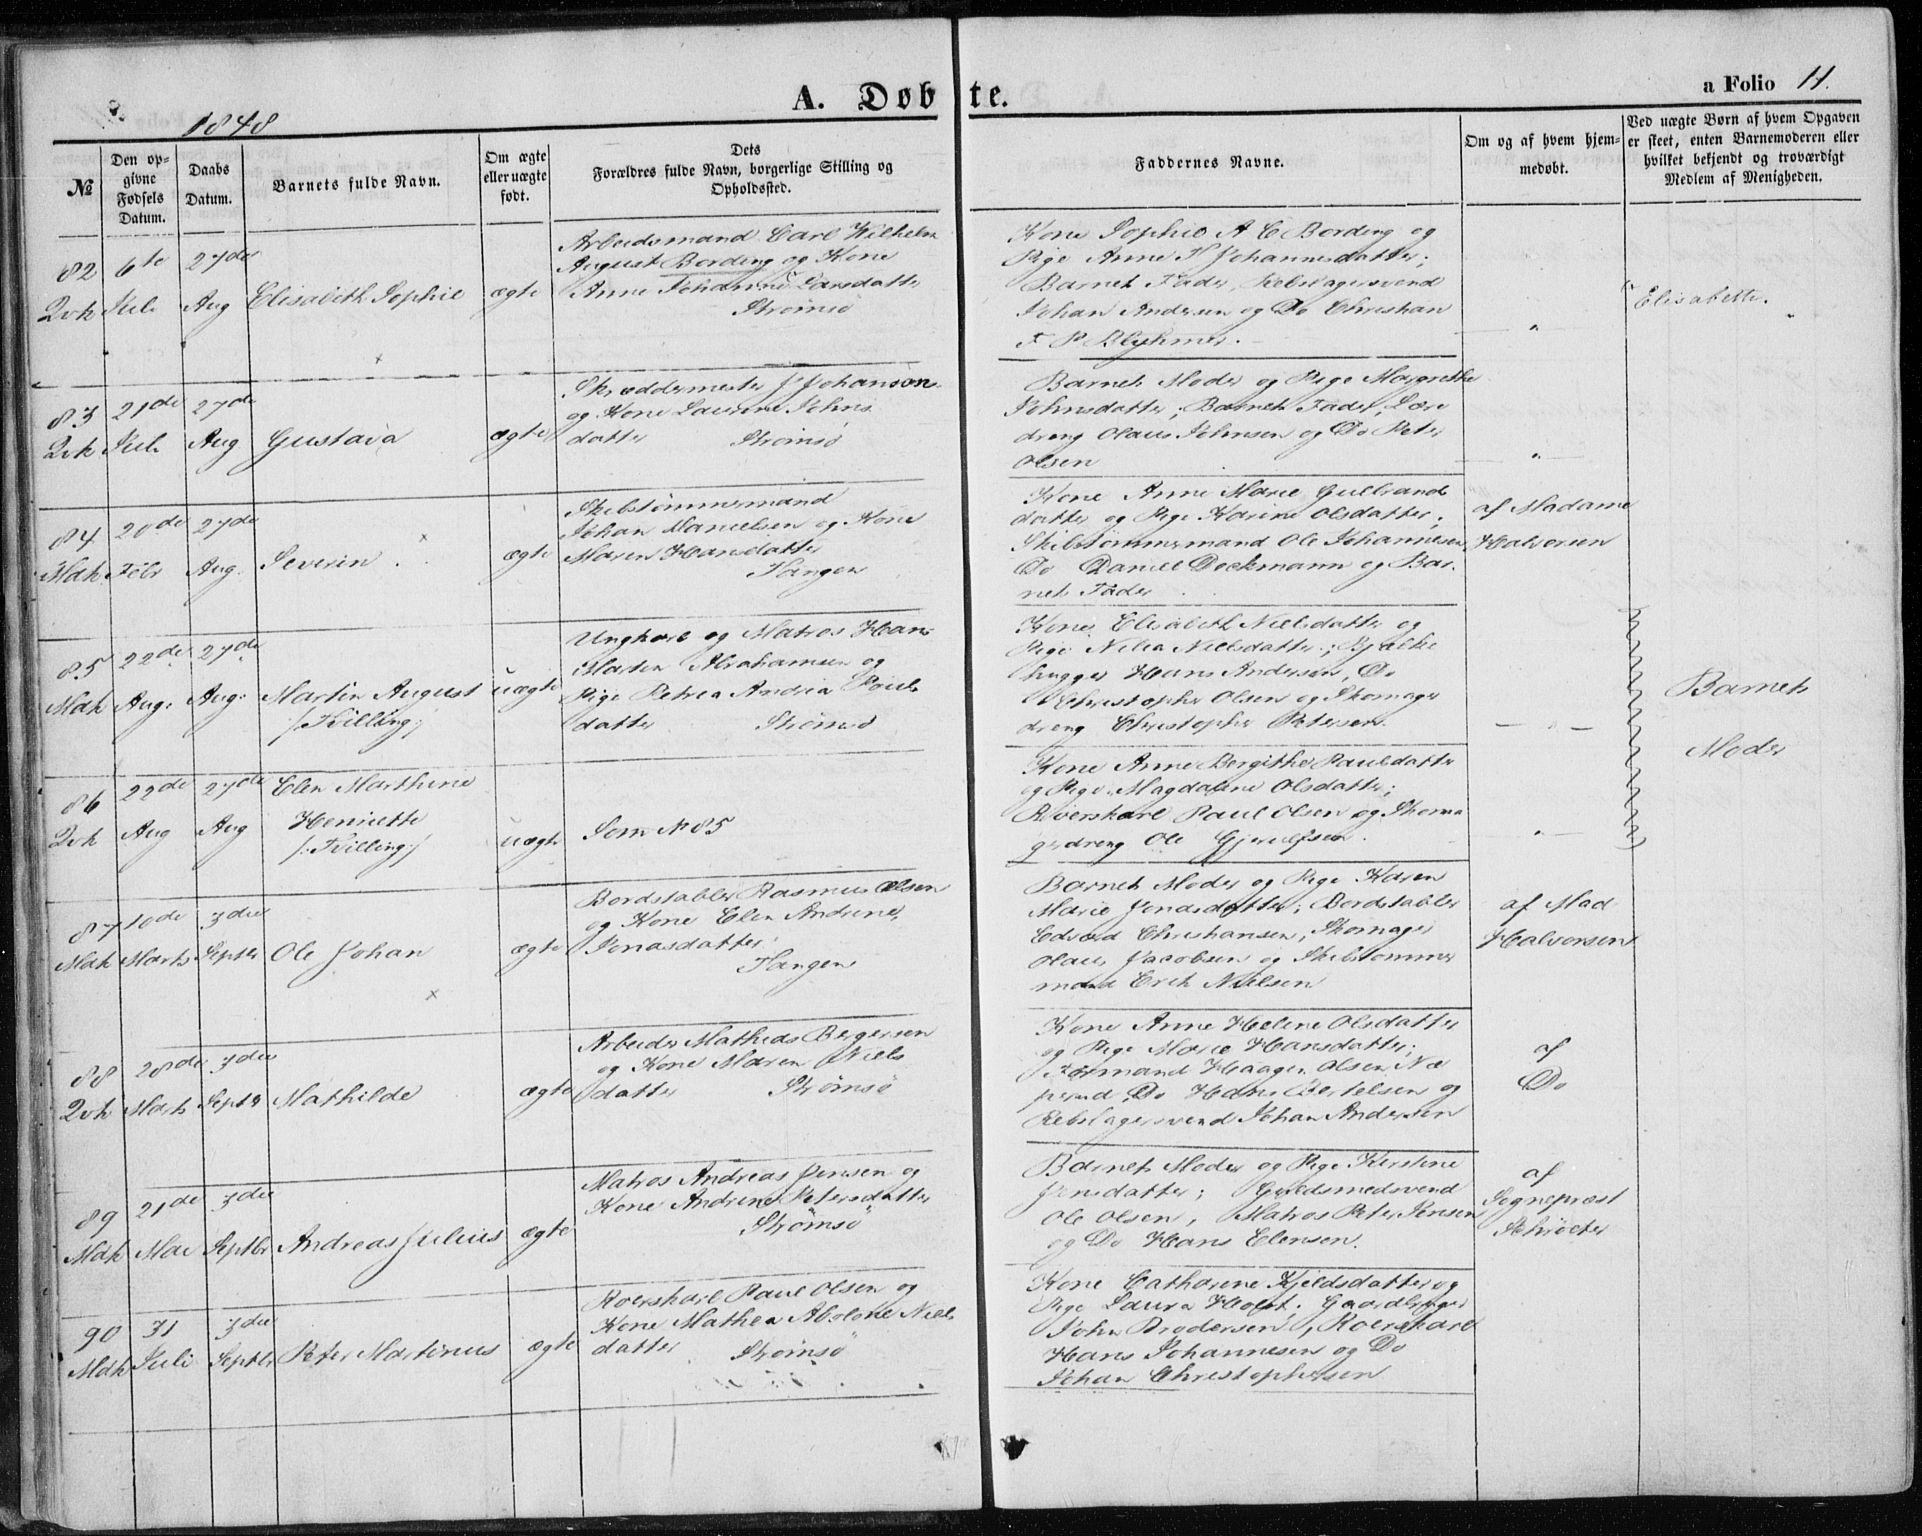 A. Døbte.
a Folio 11.
1848
№
Den opgivne Fødsels Datum.
Daabs Datum.
Barnets fulde Navn.
Om ægte eller uægte født.
Dets Forældres fulde Navn, borgerlige Stilling og Opholdssted.
Faddernes Navne.
Om og af hvem hjemmedøbt.
Ved uægte Børn af hvem Opgaven er skeet, enten Barnemoderen eller hvilket bekjendt og troværdigt Medlem af Menigheden.
82 6te 27de
Qvk Juli Aug Elisabeth Sophie ægte
Arbeidsmand Carl Wilhelm
August Bording og Kone
Anne Johanne Larsdatter
Strømsö
Kone Sophie A C Bording og
Pige Anne H Johannesdatter;
Barnets Fader, Rebslagersvend
Johan Andersen og Do Christian
F P Blykmer.
"
Elisabeth.
83 21de 27de
Qvk Juli Aug Gustava ægte
Skræddermester J Johanson
og Kone Laurine Johns
datter Strömsö
Barnets Moder og Pige Margrethe
Johnsdatter; Barnets Fader, Lære
dreng Olaus Johnsen og Do Peter
Olsen
"
84 20de 27de
Mdk Febr Aug. Severin ægte
Skibstømmermand
Johan Danielsen og Kone
Maren Hansdatter
Tangen
Kone Anne Marie Gulbrands
datter og Pige Karine Olsdatter;
Skibstömmermand Ole Johannesen,
Do Daniel Dockmann og Bar-
nets Fader
af Madame
Halvorsen
85 22de 27de
Mdk Aug: Aug: Martin August uægte
/:Tvilling:/
Ungkarl og Matros Hans
Martin Abrahamsen og
Pige Petrea Andrea Pouls
datter Strömsö
Kone Elisabeth Nielsdatter og
Pige Nilia Nielsdatter; Bjælke
hugger Hans Andersen, Do
Christopher Olsen og Skomager
dreng Christopher Petersen.
"
Barnets
Moder
86 22de 27de Elen Marthine
Qvk Aug Aug Henriette uægte
/:Tvilling:/
Som N 85
Kone Anne Bergithe Paulsdatter
og Pige Magdalene Olsdatter;
Roerskarl Paul Olsen og Skoma
gerdreng Ole Gjerulfsen.
"
87 10de 3die
Mdk Marts Septbr Ole Johan ægte
Bordstabler Rasmus Olsen
og Kone Elen Andrine
Jonasdatter
Tangen
Barnets Moder og Pige Karen
Marie Jonasdatter; Bordstabler
Edvard Christiansen, Skomager
Olaus Jacobsen og Skibstömmer
mand Erik Nielsen
af Mad
Halvorsen
88 28de 3die
Qvk Marts Septbr Mathilde ægte
Arbeider Mathias Bergersen
og Kone Maren Niels
datter Strömsö
Kone Anne Helene Olsdatter
og Pige Marie Hansdatter;
Formand Haagen Olsen Næ
perud, Do Hans Bertelsen og
Rebslagersvend Johan Andersen
af
Do
89 21de 3die
Mdk Mai Septbr Andreas Julius ægte
Matros Andreas Jensen og
Kone Andrine Petersdatter
Strömsö
Barnets Moder og Pige Kirstine
Jensdatter; Guldsmedsvend
Ole Olsen, Matros Peter Jensen
og Do Hans Elensen.
af
Sognepræst
Schröeter
90 31 3die
Mdk Juli Septbr Peter Martinus ægte
Roerskarl Paul Olsen og
Kone Mathea Abolone Niels
datter Strömsö
Kone Catharine Kjeldsdatter og
Pige Laura Holst; Gaardbruger
John Brodersen, Roerskarl
Hans Johannesen og Do
Johan Christophersen